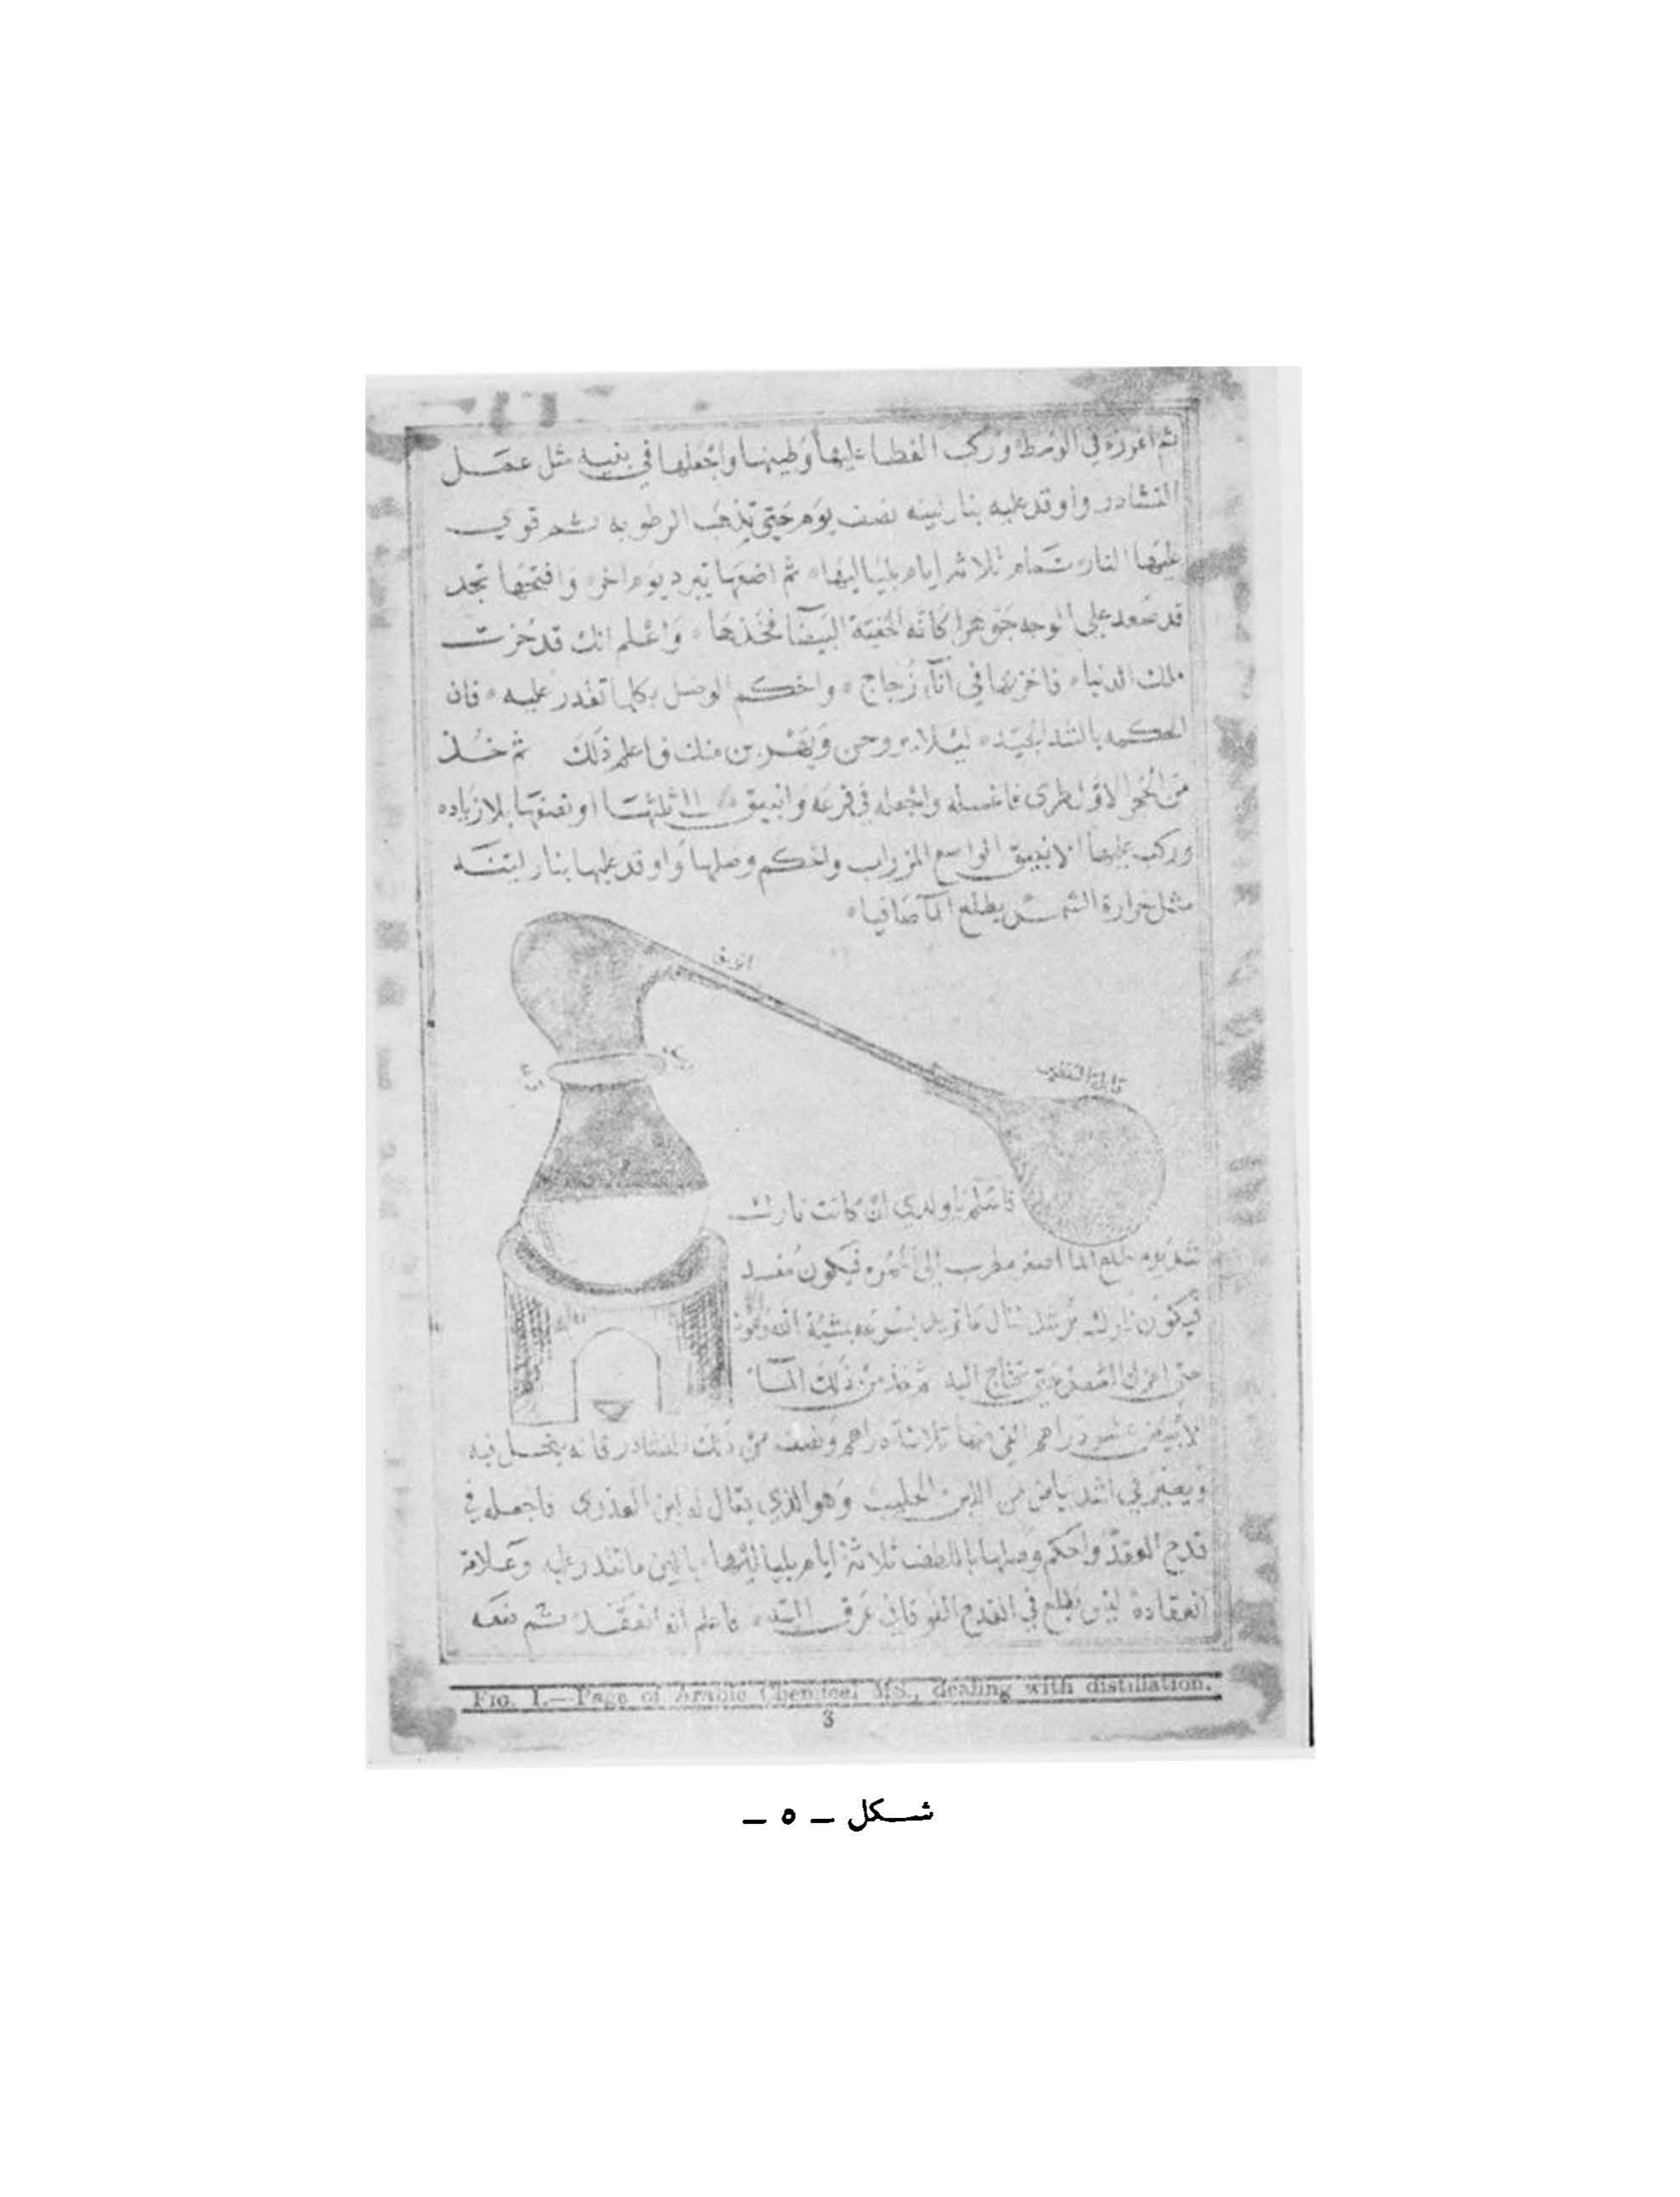 ثم اغوزه في الوسط وركب الغطا عليها وطينها واجعلها في بنيه مثل عمل
النشادر واوقد عليه بنار لينه نصف يوم حتى تذهب الرطوبه ثم قوي
عليها النار تمام ثلاثه ايام بلياليها ثم اضعها تبرد يوم اخر وافتحها تجد
قد صعد على الوجه جوهرا كانه البيضا فخذها واعلم انك قد حزت
ملك الدنيا فاخزنها في انآء زجاج واحكم الوصل بكلما تقدر عليه فان
بالشد الجيد ليلا يروحن ويهربن منك فاعلم ذلك ثم خذ
من الحجر الاول طرى فاغسله واجعله في قرعه وانبيق ثلثها او نصفها بلا زياده
وركب عليها الانبيق الواسع المزراب واحكم وصلها واوقد عليها بنار لينه
مثل حرارة الشمس يطلع المآ صافيا
قابلة
فاعلم يا ولدي ان كانت نارك
الما اصفر الى فيكون
فيكون تنال ما تريد بسرعه بمشية الله
حتى تحتاج اليه ثم خذ من ذلك المآ
الابيض دراهم ثلاثة دراهم ونصف من ذلك النشادر فانه ينحل فيه
ويصير في اشد بياض من اللبن الحليب وهو الذي يقال له لبن العذرى فاجعله في
قدح العقد واحكم وصلها ثلاثة ايام بلياليها ما تقدر عليه وعلامة
انعقاده ليس يطلع في القدح الفوقاني عرق فاعلم انه انعقد ثم
FIG. 1.—Page of Arabic Chemical MS., dealing with distillation.
3
شكل – ٥ –